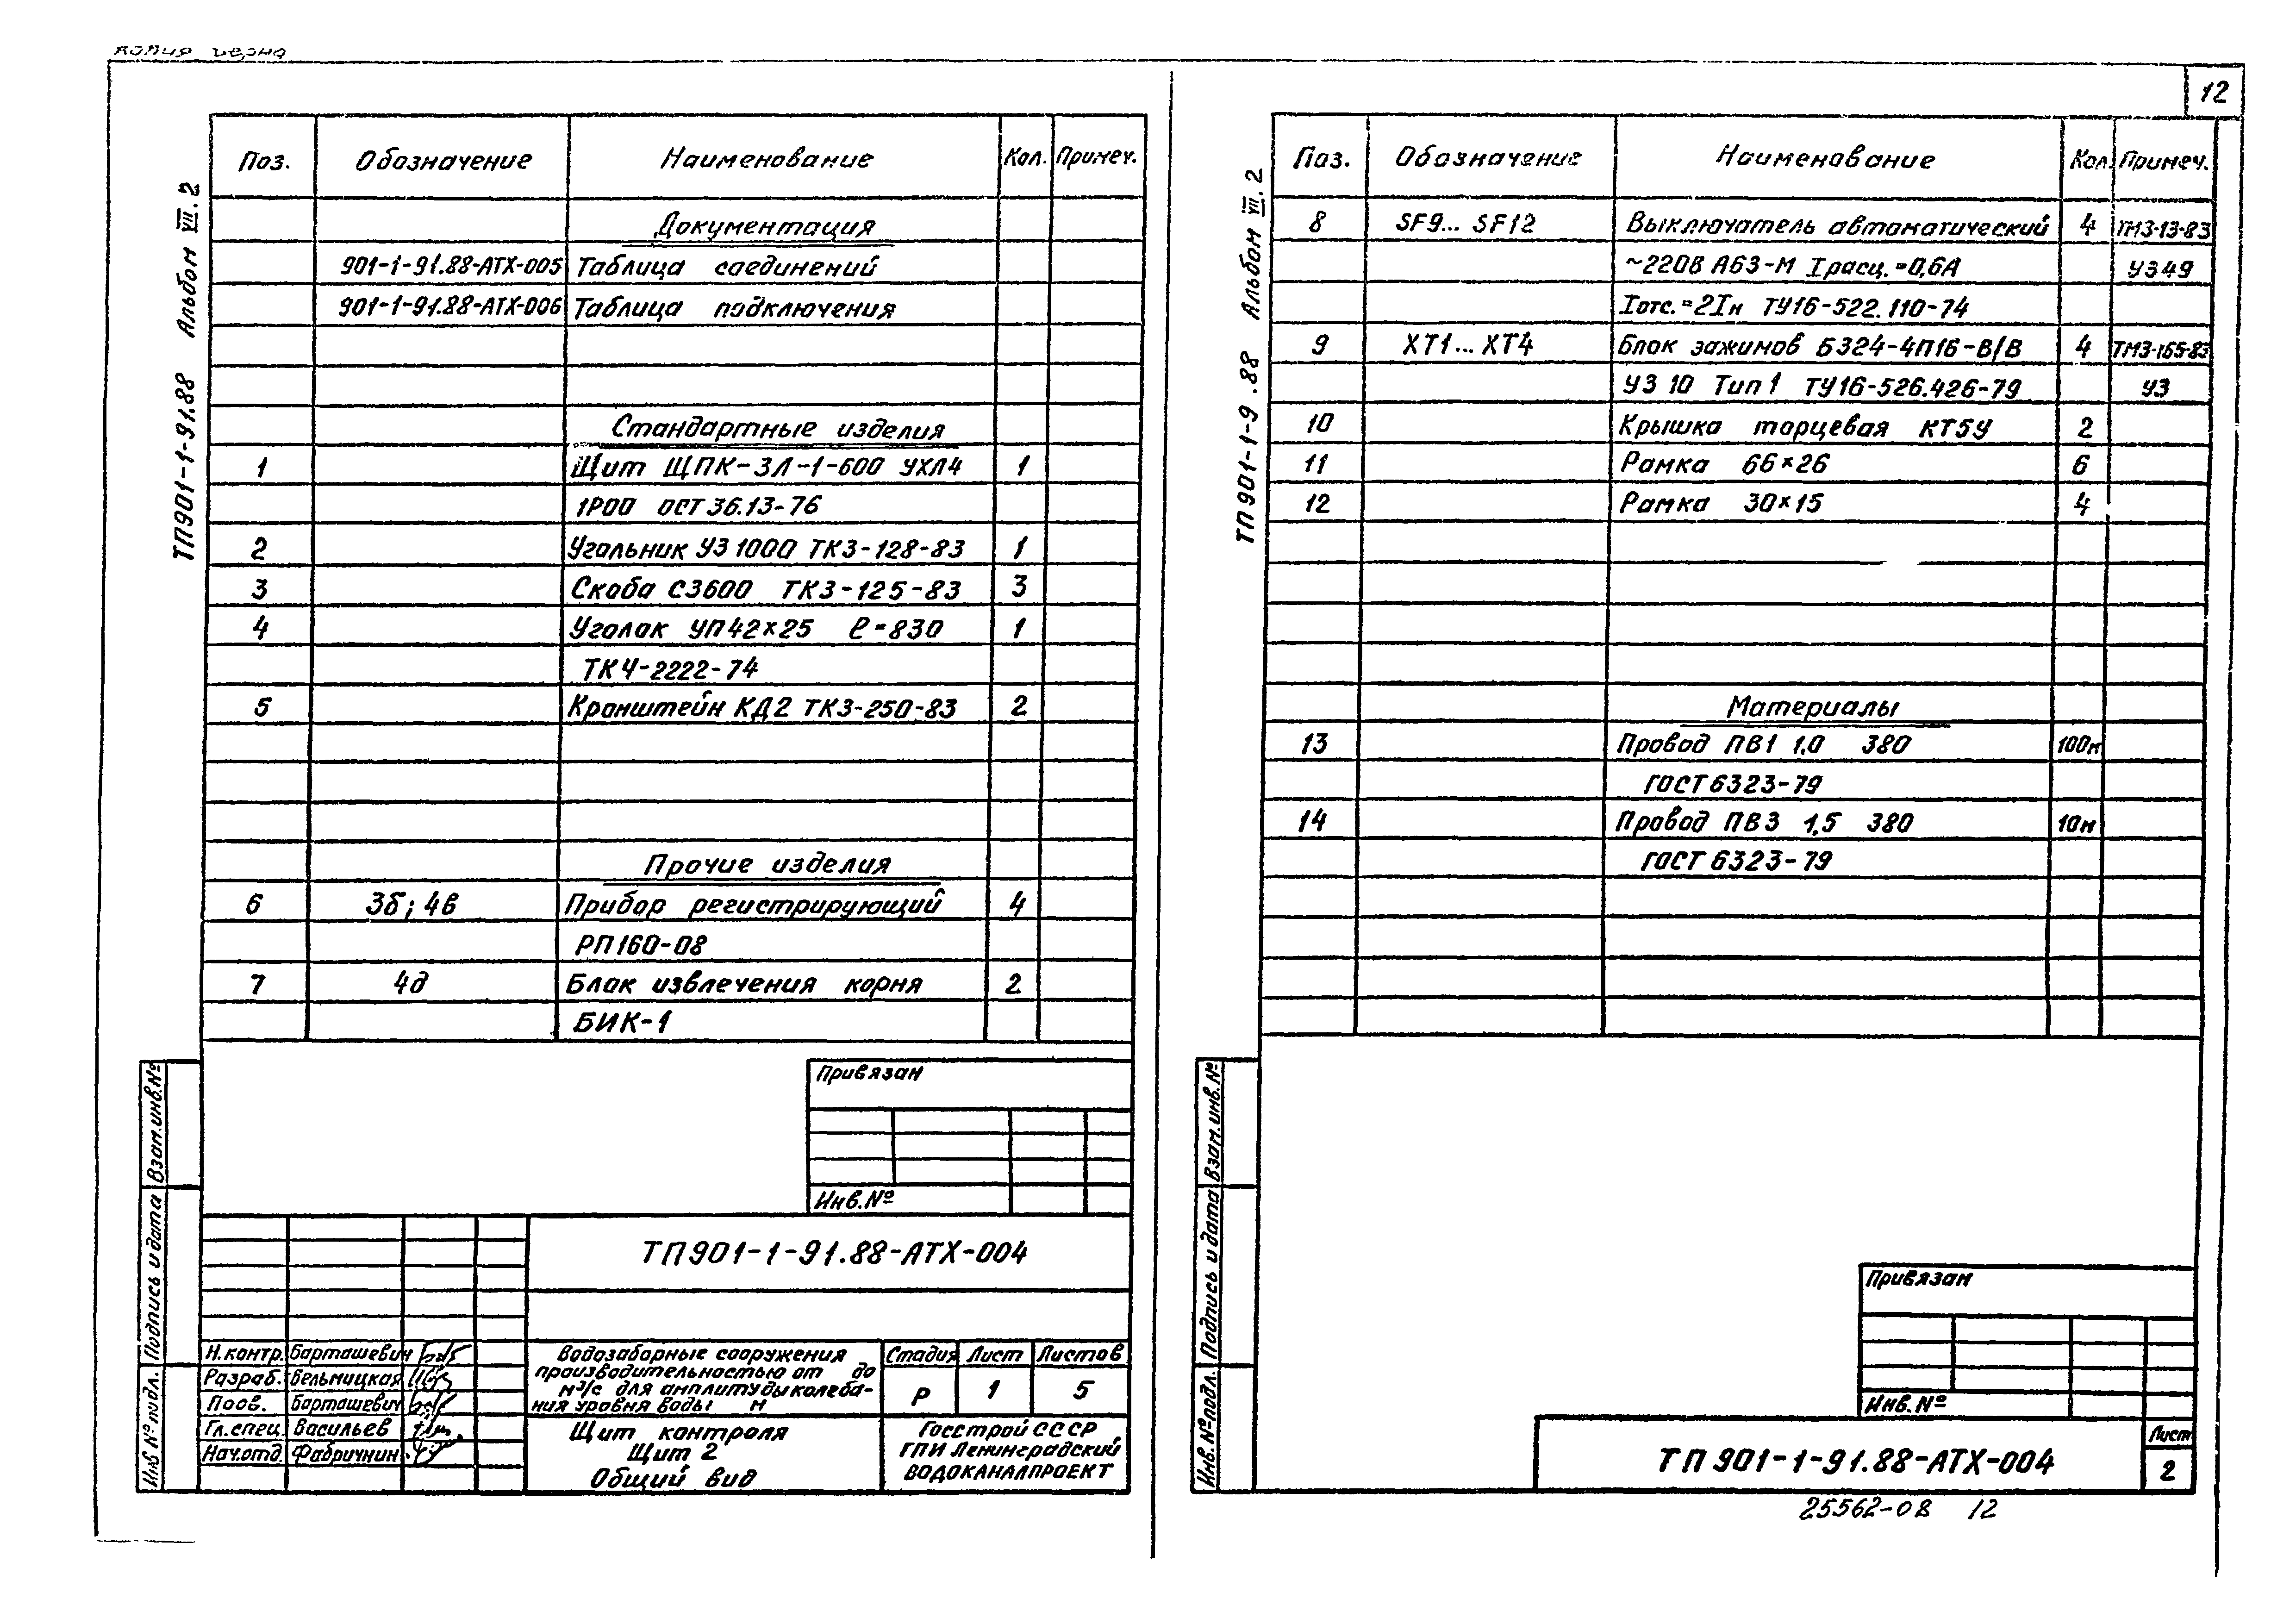 копия верна
12
ТП901-1-91.88 Альбом VII.2
Поз. Обозначение Наименование Кол. Примеч.
Документация
901-1-91.88-АТХ-005 Таблица соединений
901-1-91.88-АТХ-006 Таблица подключения
Стандартные изделия
1 Щит ЩПК-3Л-1-600 УХЛ4 1
1Р00 ОСТ 36.13-76
2 Угольник УЗ 1000 ТК3-128-83 1
3 Скоба С3600 ТК3-125-83 3
4 Уголок УП42×25 ℓ=830 1
ТК4-2222-74
5 Кронштейн КД2 ТК3-250-83 2
Прочие изделия
6 3б; 4в Прибор регистрирующий 4
РП160-08
7 4д Блок извлечения корня 2
БИК-1
Привязан
Инв.№
Взам.инв.№
Подпись и дата
Инв № подл.
ТП901-1-91.88-АТХ-004
Н.контр. Барташевич
Разраб. Бельницкая
Пров. Барташевич
Гл.спец. Васильев
Нач.отд. Фабричнин
Водозаборные сооружения
производительностью от до
м³/с для амплитуды колеба-
ния уровня воды м
Стадия Лист Листов
Р 1 5
Щит контроля
Щит 2
Общий вид
Госстрой СССР
ГПИ Ленинградский
ВОДОКАНАЛПРОЕКТ
ТП901-1-9 .88 Альбом VII.2
Поз. Обозначение Наименование Кол. Примеч.
8 SF9... SF12 Выключатель автоматический 4 ТМ3-13-83
~220В А63-М Iрасц.=0,6А У349
Iотс.=2Iн ТУ16-522.110-74
9 ХТ1... ХТ4 Блок зажимов Б324-4П16-В/В 4 ТМ3-165-83
У3 10 Тип 1 ТУ16-526.426-79 У3
10 Крышка торцевая КТ5У 2
11 Рамка 66×26 6
12 Рамка 30×15 4
Материалы
13 Провод ПВ1 1,0 380 100м
ГОСТ 6323-79
14 Провод ПВ3 1,5 380 10м
ГОСТ 6323-79
Взам.инв.№
Подпись и дата
Инв.№ подл.
Привязан
Инв.№
ТП 901-1-91.88-АТХ-004
Лист
2
25562-08 12